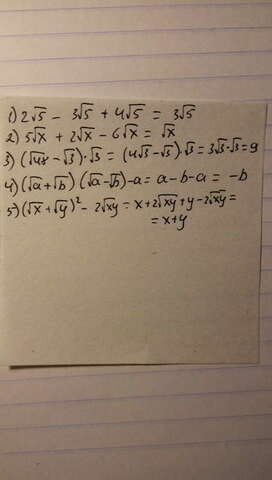 1) 2√5 - 3√5 + 4√5 = 3√5
2) 5√x + 2√x - 6√x = √x
3) (√48 - √3)·√3 = (4√3 - √3)·√3 = 3√3·√3 = 9
4) (√a + √b) (√a - √b) - a = a - b - a = -b
5) (√x + √y)² - 2√xy = x + 2√xy + y - 2√xy =
= x + y